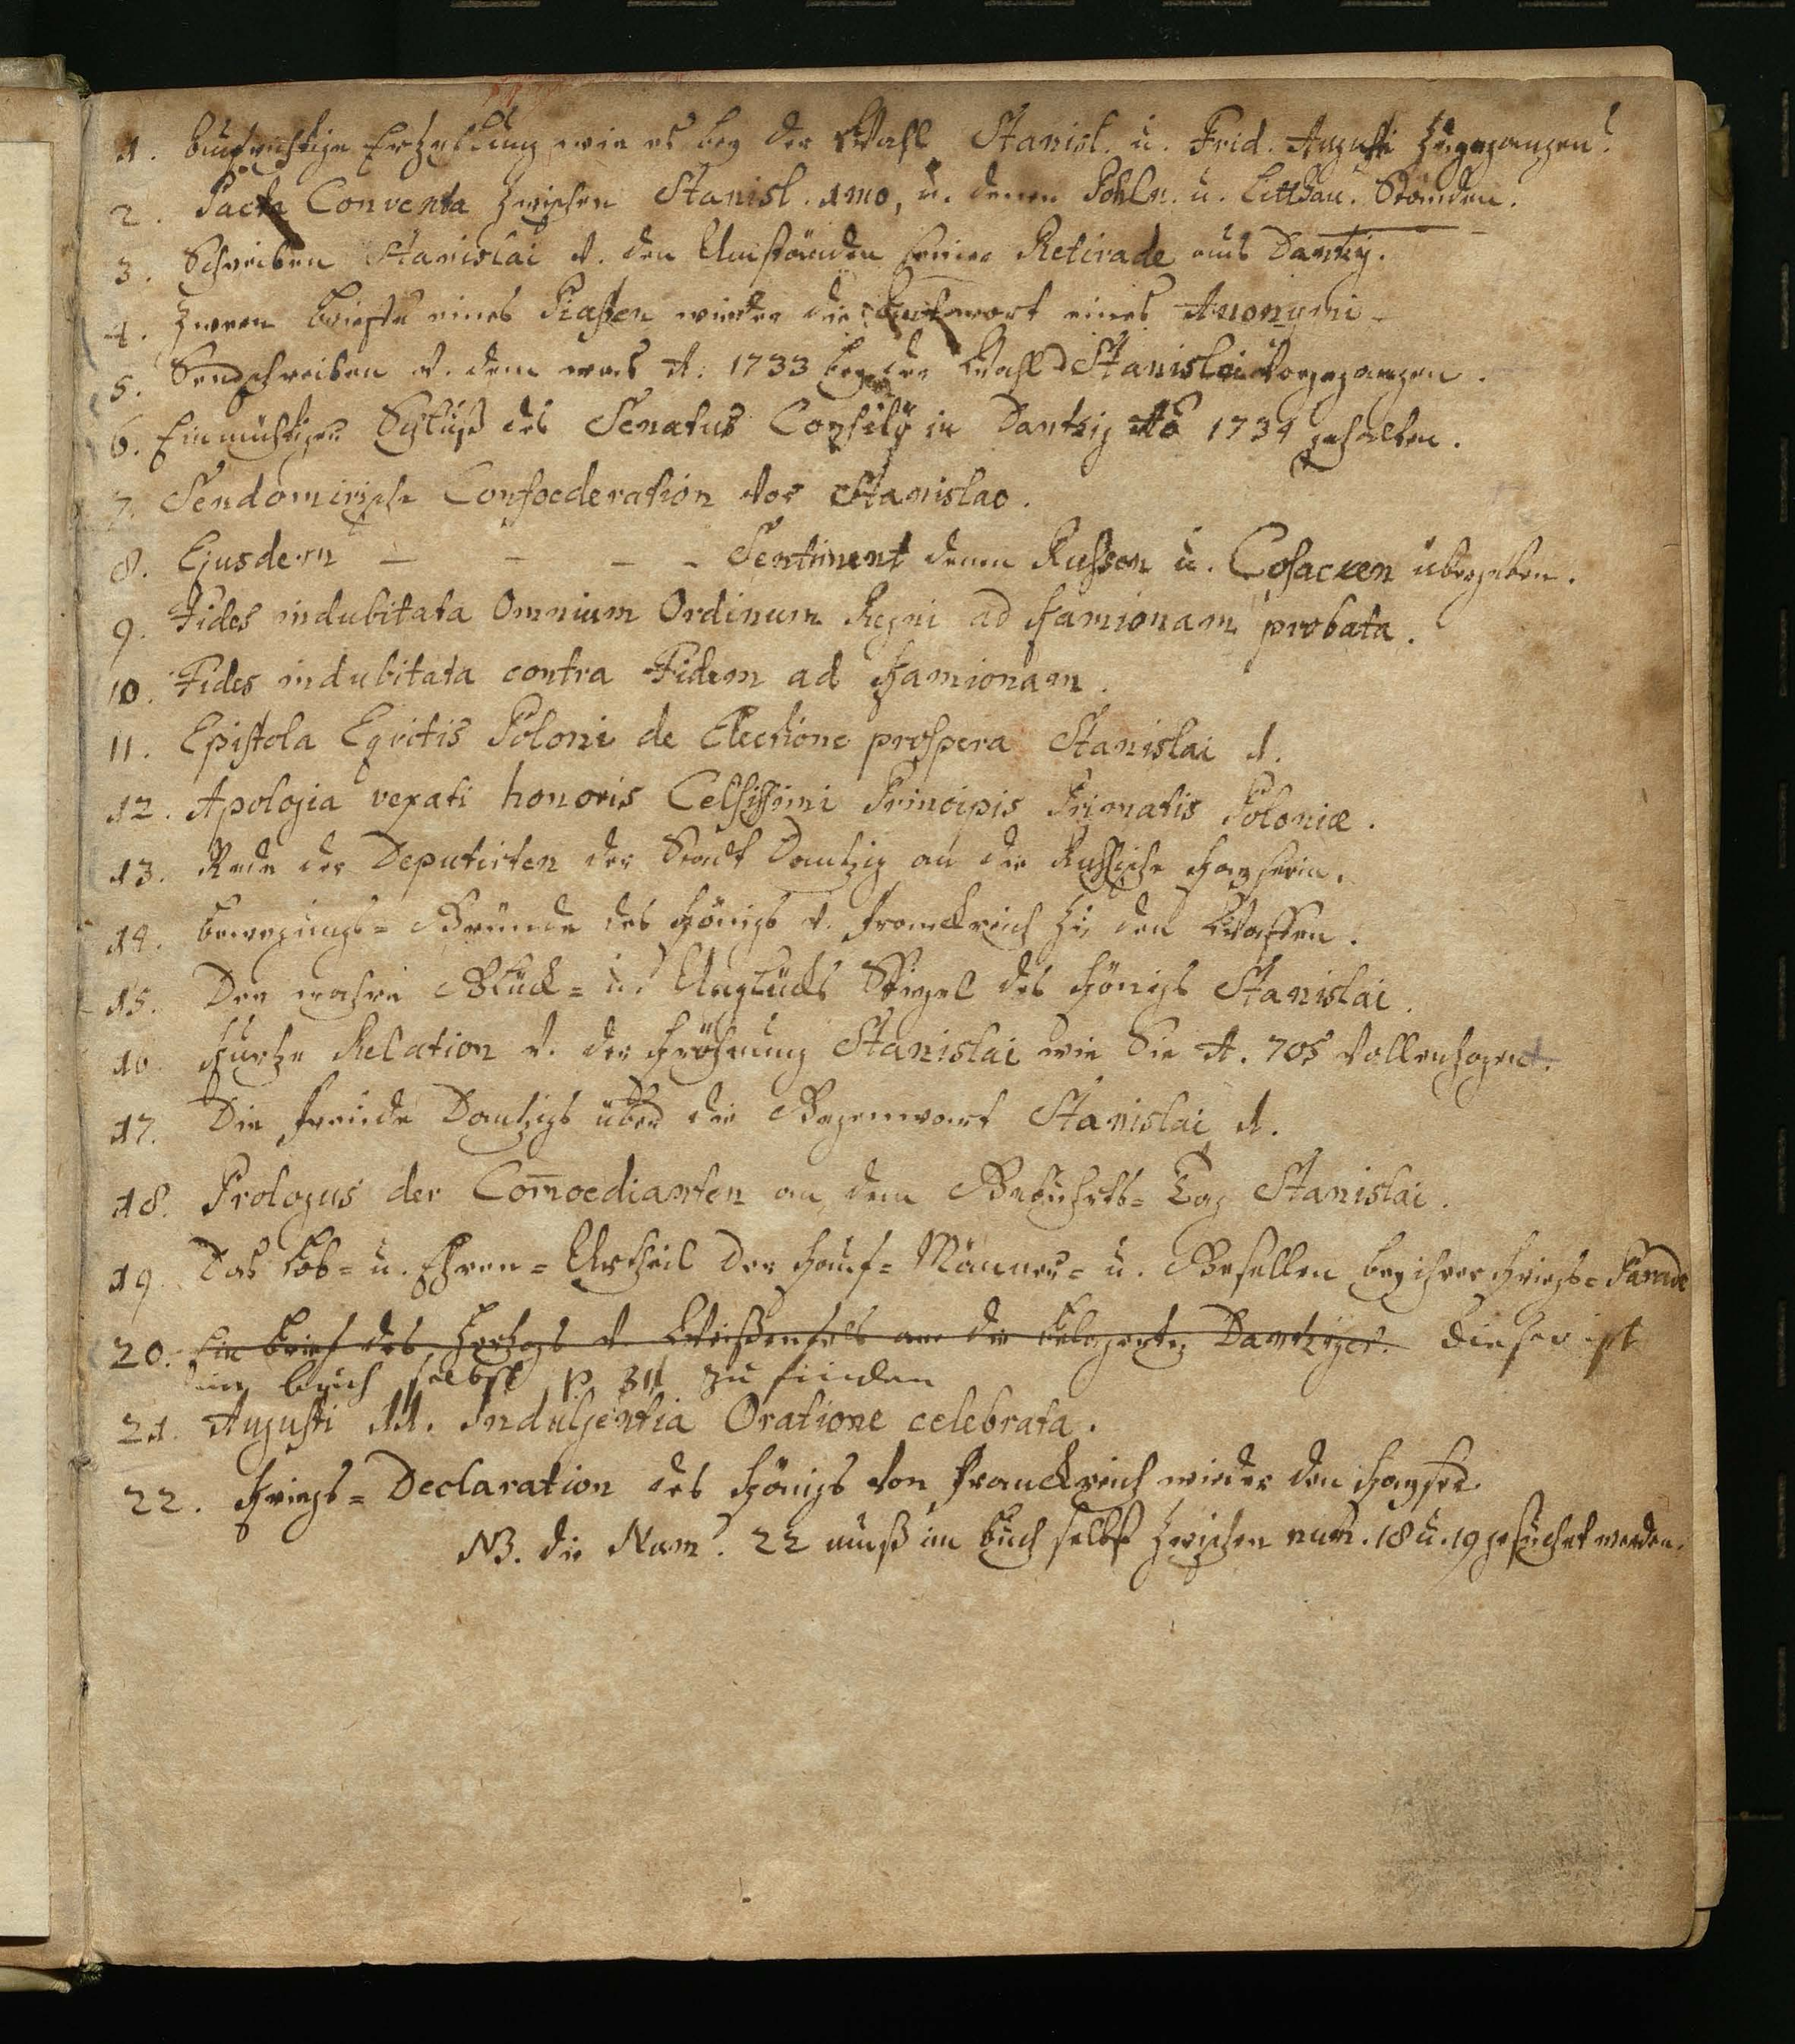 1. Aufrichtige Erzehlung wie es bey der Wahl Stanisl. u. Frid. Augusti zugegangen.
2. Pacta Conventa zwischen Stanisl. 1mo, u. denen Pohln. u. Litthau. Ständen.
3. Schreiben Stanislai v. den Umständen seiner Retirade aus Dantzig.
4. Zween Briefe eines Piasten wieder die Antwort eines Anonymi
5. Sendschreiben v. dem was A. 1733 bey der Wahl Stanislai vorgegangen.
6. Einmüthiger Schluß des Senatus Consilij in Dantzig Ao 1734 gehalten.
7. Sendomirische Confoederation vor Stanislao.
8. Ejusdem - - - - Sentiment denen Russen u. Cosacken übergeben.
9. Fides indubitata Omnium Ordinum Regni ad Kamionam probata.
10. Fides indubitata contra Fidem ad Kamionam.
11. Epistola Equitis Poloni de Electione prospera Stanislai 1.
12. Apologia vexati honoris Celsissimi Principis Primatis Poloniæ.
13. Rede der Deputirten der Stadt Dantzig an die Russische Kayserin.
14. Bewegungs=Gründe des Königs v. Franckreich zu den Waffen.
15. Der wahre Glück= u. Unglücks Spiegel des Königs Stanislai.
16. Kurtze Relation v. der Kröhnung Stanislai wie Sie A. 705 vollenzogen.
17. Die Freude Dantzigs über die Gegenwart Stanislai 1.
18. Prologus der Com̄oedianten an dem Gebuhrts=Tag Stanislai.
19. Das Lob= u. Ehren=Urtheil der Kauf=Männer= u. Gesellen bey ihrer Kriegs=Parade
20. Ein Brief des Hertzogs v. Weißenfels an die belagerten Dantziger. Dieser ist
im Buch selbst p. 311 zu finden
21. Augusti 11. Indulgentia Oratione celebrata.
22. Kriegs=Declaration des Königs von Franckreich wieder den Kayser.
NB. die Num. 22 muß im Buch selbst zwischen num. 18 u. 19 gesuchet werden.